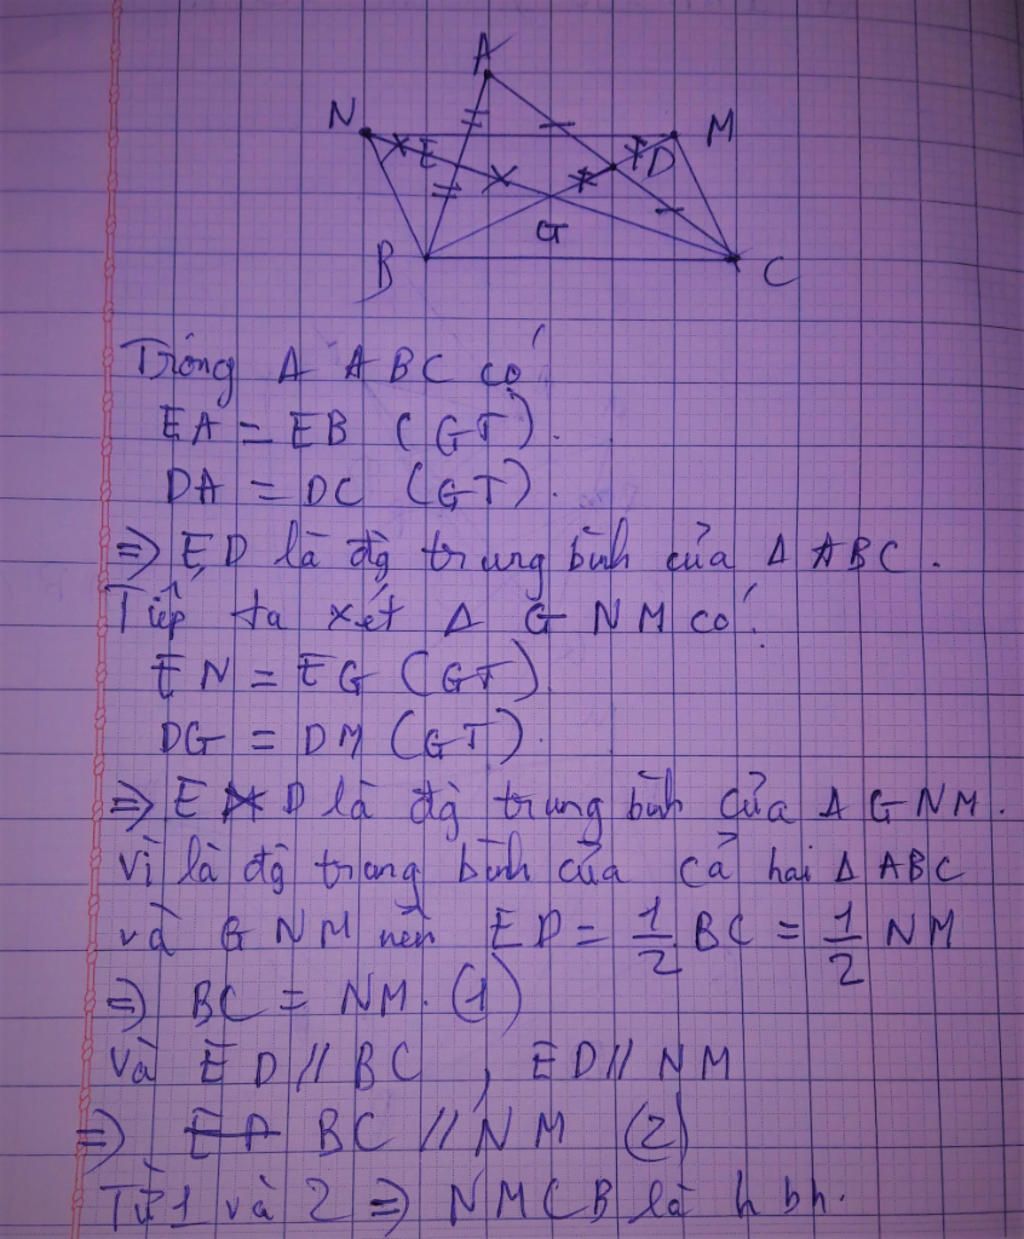 A
N
M
E
D
G
B
C
Trong Δ ABC có
EA = EB (GT).
DA = DC (GT).
=> ED là đg trung bình của Δ ABC.
Tiếp ta xét Δ GNM có:
EN = EG (GT)
DG = DM (GT).
=> ED là đg trung bình của Δ GNM.
Vì là đg trung bình của cả hai Δ ABC
và GNM nên ED = 1/2 BC = 1/2 NM
=> BC = NM. (1)
và ED // BC , ED // NM
=> BC // NM (2)
Từ 1 và 2 => NMCB là hbh.